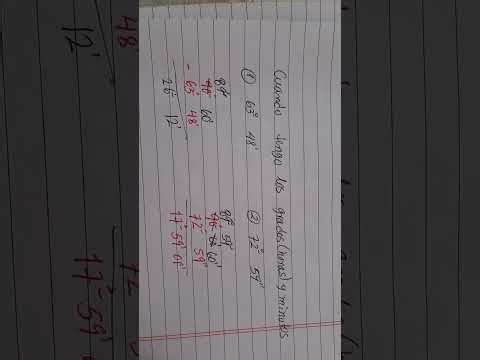 Cuando tengo los grados(horas) y minutos
① 63° 48' ② 72° 59"
89°
60'
- 63° 48'
26° 12'
89° 59'
60"
72° 59"
17° 59' 01"
48'
12'
72
17° 59'